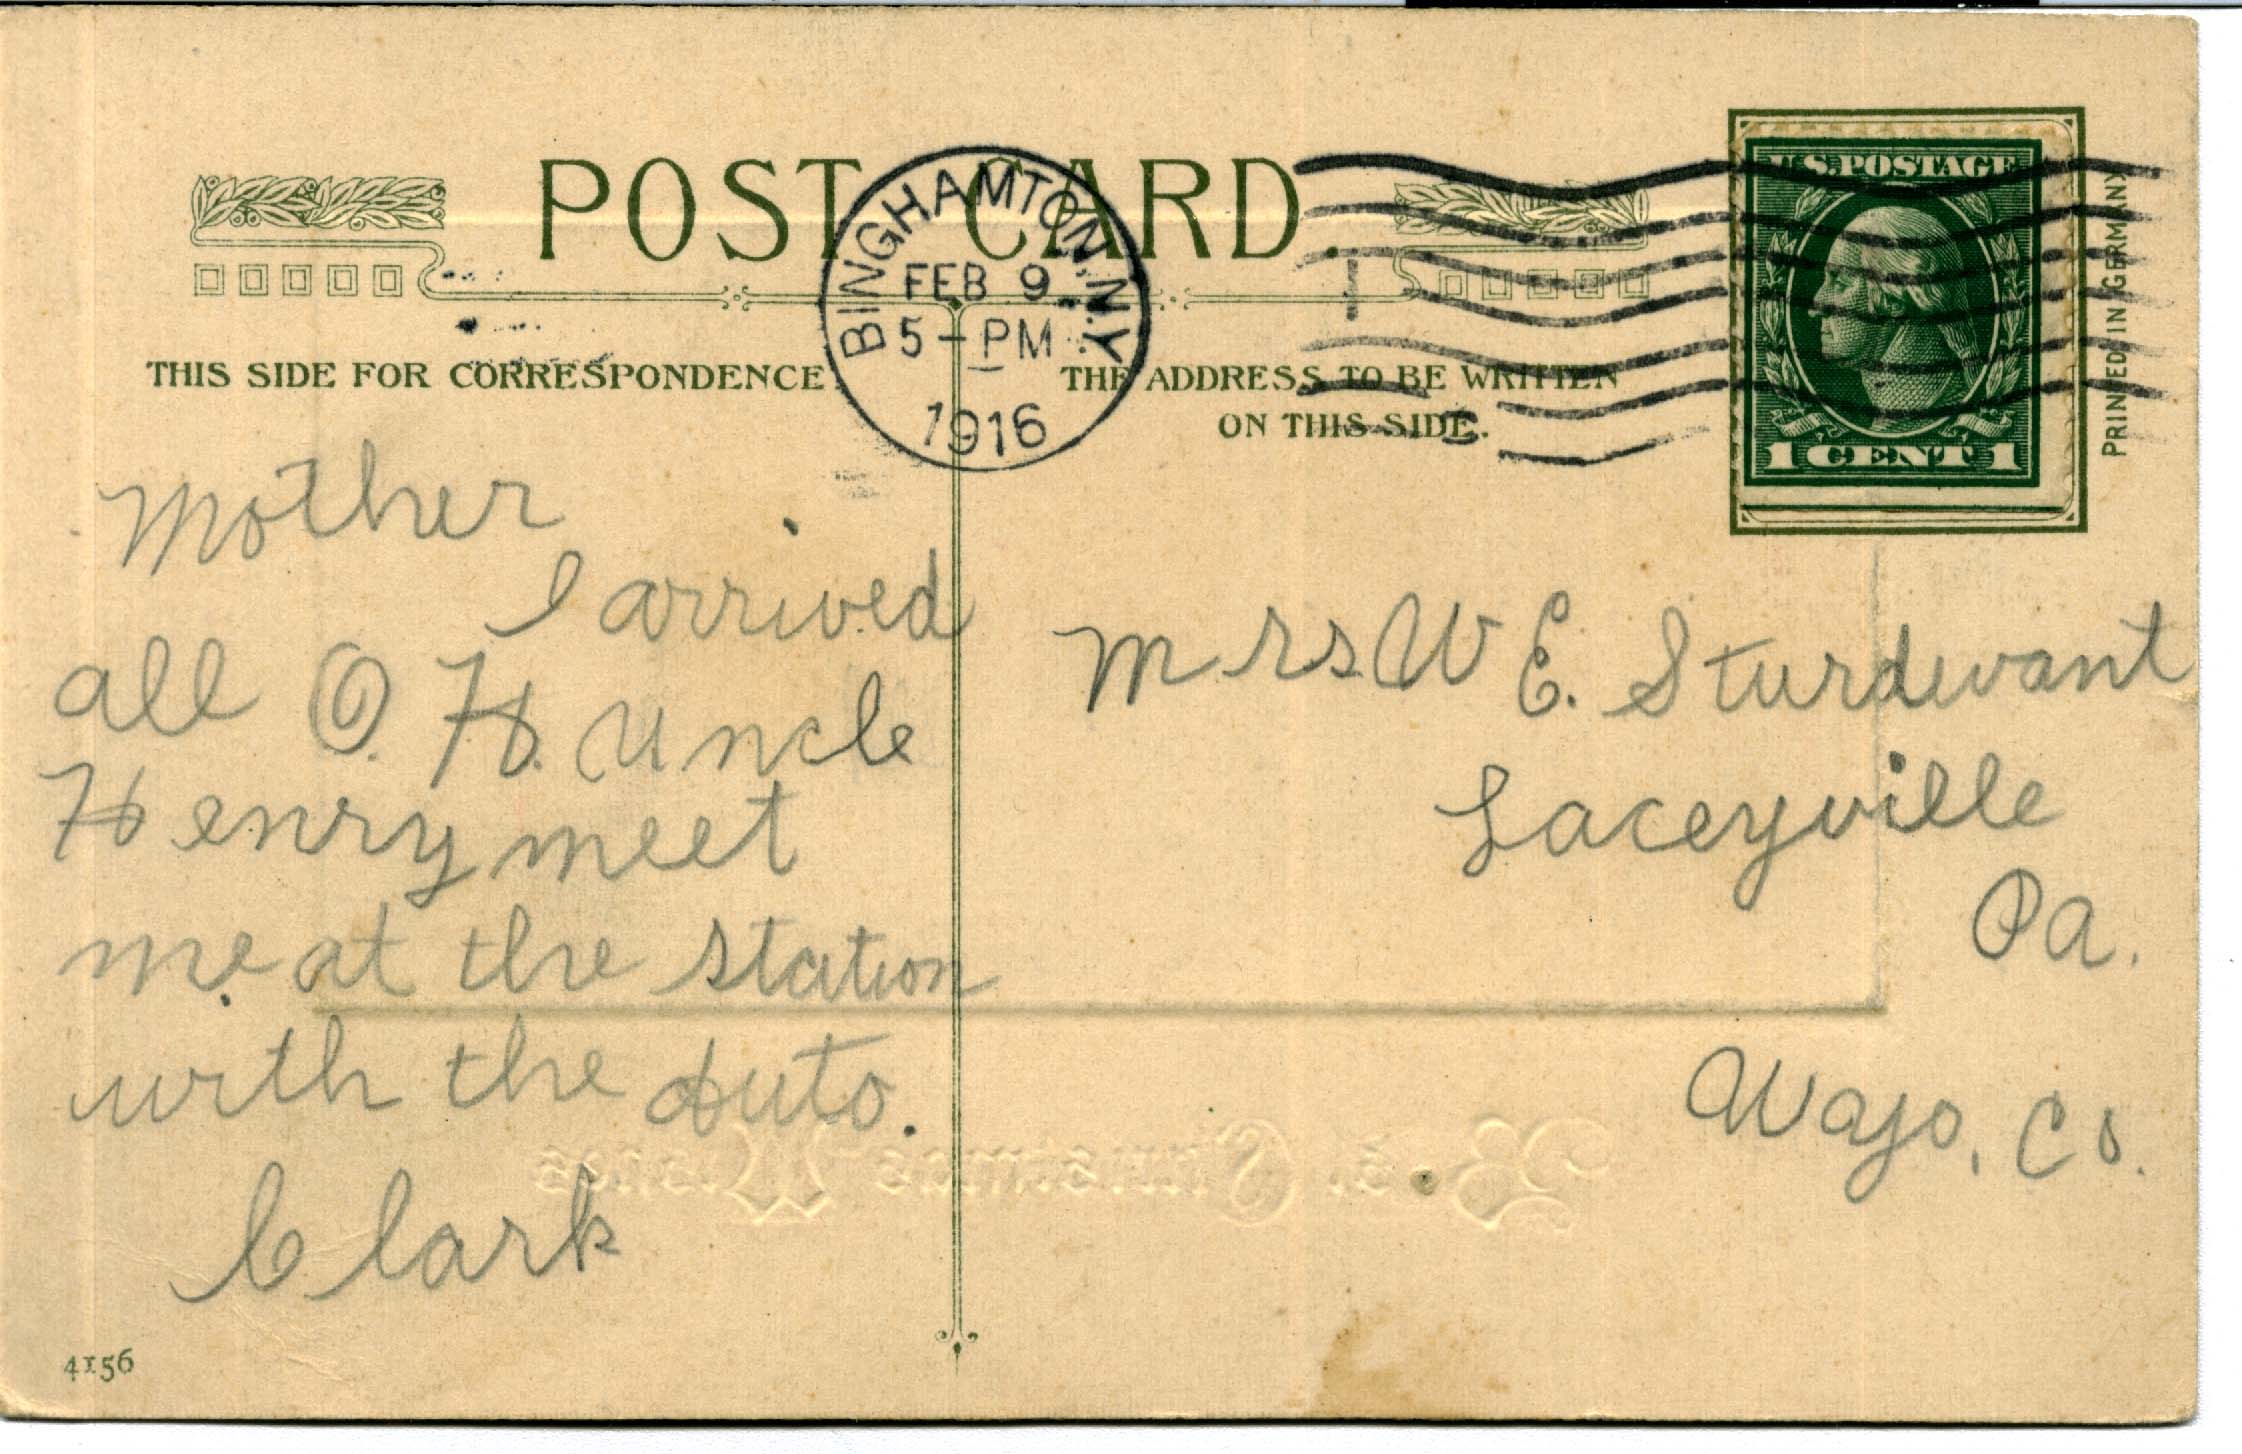 POST CARD
BINGHAMTON, N.Y.
FEB 9
5 - PM
1916
U.S. POSTAGE
1 CENT 1
PRINTED IN GERMANY
THIS SIDE FOR CORRESPONDENCE.
THE ADDRESS TO BE WRITTEN
ON THIS SIDE.
Mother
I arrived
all O. H. Uncle
Henry meet
me at the station
with the auto.
Clark
Mrs W E. Sturdivant
Laceyville
Pa.
Wayo, Co.
4156